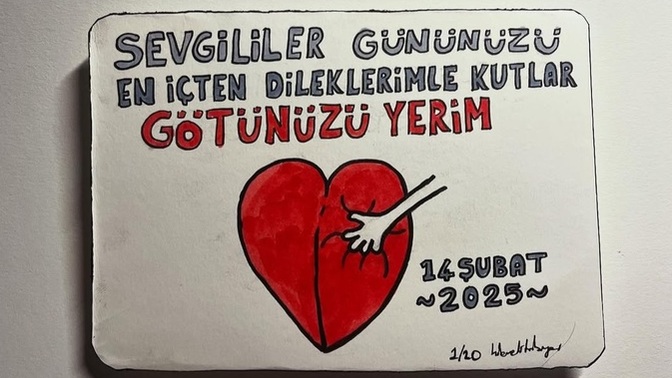 SEVGİLİLER GÜNÜNÜZÜ
EN İÇTEN DİLEKLERİMLE KUTLAR
GÖTÜNÜZÜ YERİM
14 ŞUBAT
~2025~
1/20